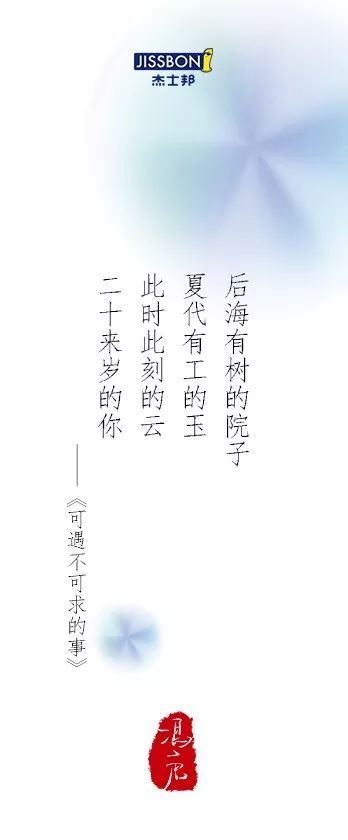 JISSBON
杰士邦
后海有树的院子
夏代有工的玉
此时此刻的云
二十来岁的你
——《可遇不可求的事》
冯唐